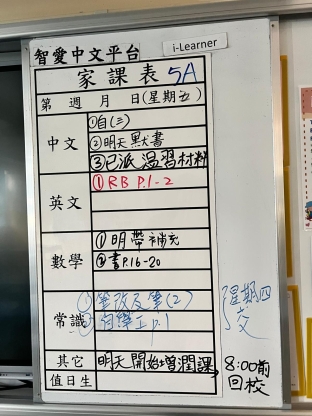 智愛中文平台
i-Learner
家課表 5A
第 週 月 日(星期五)
中文
①自(三)
②明天默書
③已派溫習材料
英文
①RB P.1-2
數學
①明帶補充
②書P.16-20
常識
①筆改及筆(2)
②自學士p.1
星期四交
其它
明天開始增潤課
8:00前回校
值日生